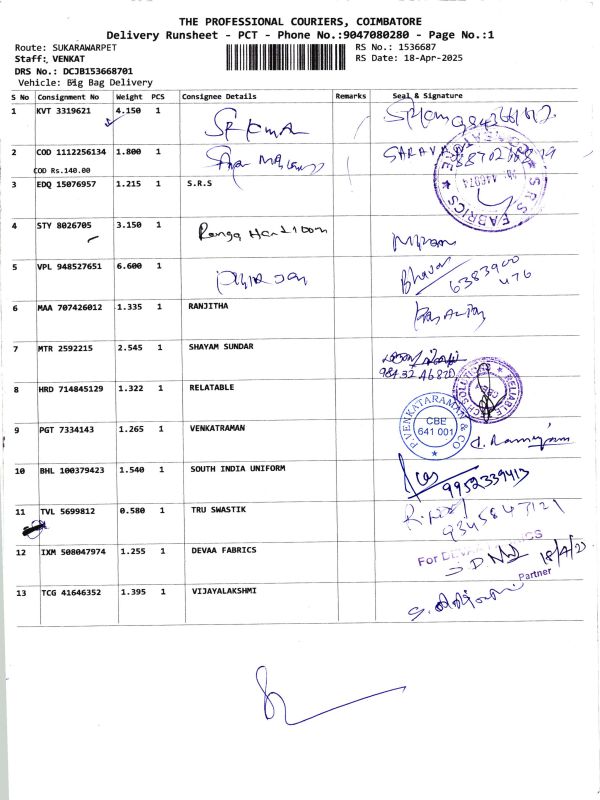 THE PROFESSIONAL COURIERS, COIMBATORE
Delivery Runsheet - PCT - Phone No.:9047080280 - Page No.:1
Route: SUKARAWARPET
RS No.: 1536687
Staff: VENKAT
RS Date: 18-Apr-2025
DRS No.: DCJB153668701
Vehicle: Big Bag Delivery
S No Consignment No Weight PCS Consignee Details Remarks Seal & Signature
1 KVT 3319621 4.150 1
2 COD 1112256134 1.800 1
COD Rs.140.00
3 EDQ 15076957 1.215 1 S.R.S
S.R.S FABRICS
4 STY 8026705 3.150 1
5 VPL 948527651 6.600 1 Bhavan
6383900
476
6 MAA 707426012 1.335 1 RANJITHA
7 MTR 2592215 2.545 1 SHAYAM SUNDAR
8 HRD 714845129 1.322 1 RELATABLE
RELIABLE
9 PGT 7334143 1.265 1 VENKATRAMAN
P.VENKATARAMAN & CO
CBE
641 001
10 BHL 100379423 1.540 1 SOUTH INDIA UNIFORM
9952339413
11 TVL 5699812 0.580 1 TRU SWASTIK
9345847121
12 IXM 508047974 1.255 1 DEVAA FABRICS
For DEVAA FABRICS
Partner
13 TCG 41646352 1.395 1 VIJAYALAKSHMI